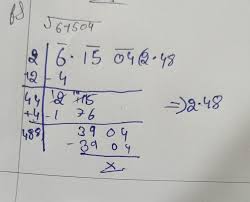 √6.1504
2 | 6.15 04 (2.48
+2 | - 4
44 | 2 15
+4 | - 1 76
488 | 39 04
- 39 04
x
⇒ 2.48